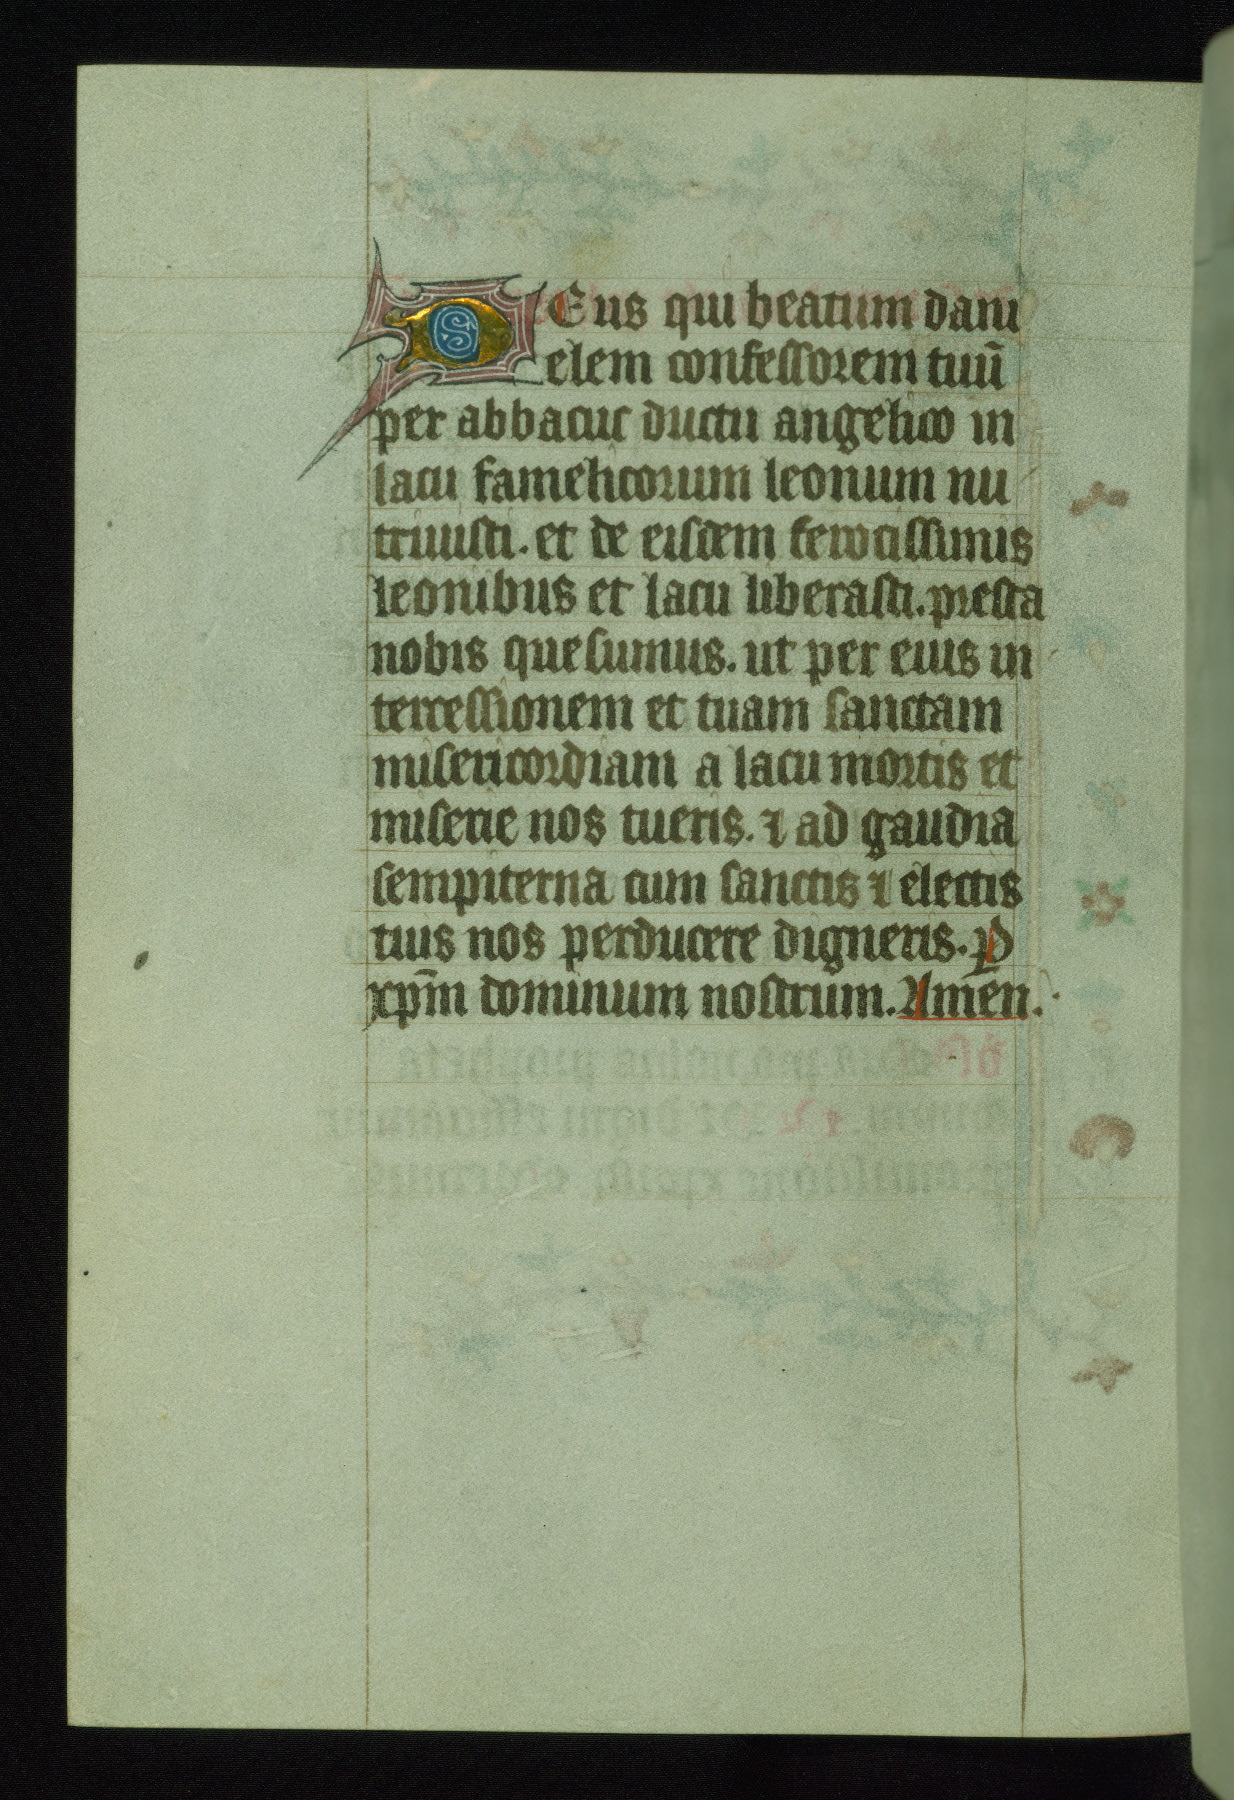 DEus qui beatum dani
elem confessorem tuū
per abbacuc ductu angelico in
lacu famelicorum leonum nu
triuisti. et de eisdem ferocissimis
leonibus et lacu liberasti. presta
nobis quesumus. ut per eius in
tercessionem et tuam sanctam
misericordiam a lacu mortis et
miserie nos tueris. ⁊ ad gaudia
sempiterna cum sanctis ⁊ electis
tuis nos perducere digneris. P
xp̄m dominum nostrum. Amen.